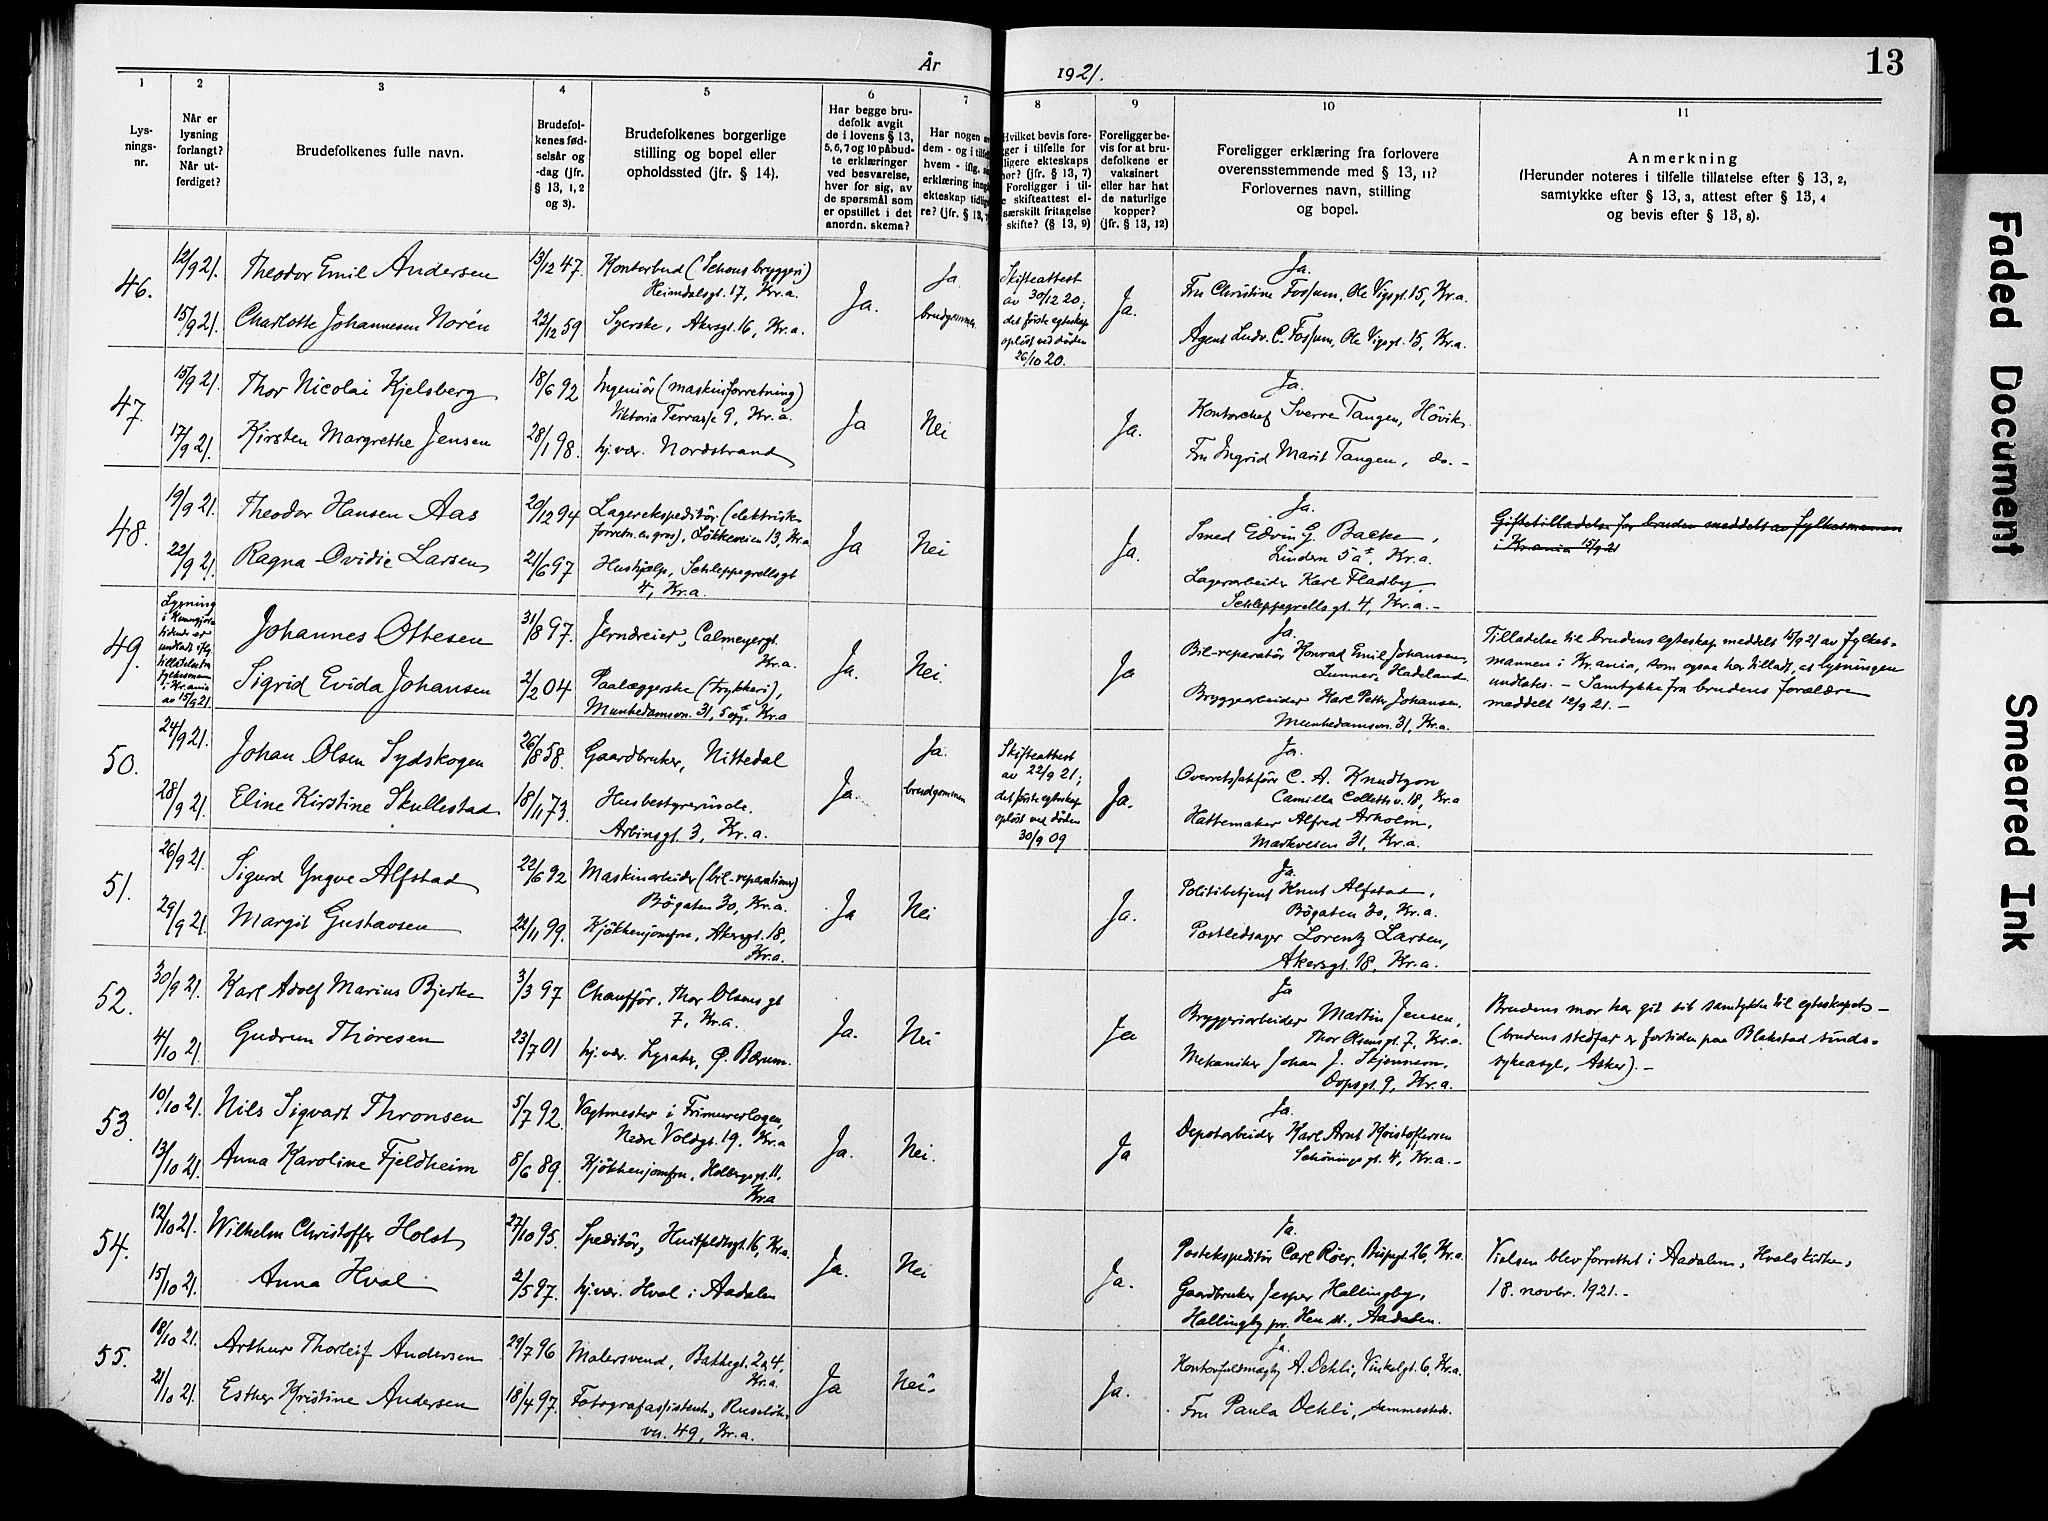 År 1921.
13
1
2
3
4
5
6
7
8
9
10
11
Lys-
nings-
nr.
Når er
lysning
forlangt?
Når ut-
ferdiget?
Brudefolkenes fulle navn.
Brudefol-
kenes fød-
selsår og
-dag (jfr.
§ 13, 1, 2
og 3).
Brudefolkenes borgerlige
stilling og bopel eller
opholdssted (jfr. § 14).
Har begge bru-
defolk avgit
de i lovens § 13,
5, 6, 7 og 10 påbud-
te erklæringer
ved besvarelse,
hver for sig, av
de spørsmål som
er opstillet i det
anordn. skema?
Har nogen
dem - og i
hvem - iflg.
erklæring
ekteskap
re? (jfr. § 13,
Hvilket bevis fore-
ger i tilfelle for
ligere ekteskaps
hør? (jfr. § 13, 7)
Foreligger i til-
e skifteattest el-
særskilt fritagelse
skifte? (§ 13, 9)
Foreligger be-
vis for at bru-
defolkene er
vaksinert
eller har hat
de naturlige
kopper?
(jfr. § 13, 12)
Foreligger erklæring fra forlovere
overensstemmende med § 13, 11?
Forlovernes navn, stilling
og bopel.
Anmerkning
(Herunder noteres i tilfelle tillatelse efter § 13, 2,
samtykke efter § 13, 3, attest efter § 13, 4
og bevis efter § 13, 8).
46.
12/9 21.
15/9 21.
Theodor Emil Andersen
Charlotte Johannesen Norén
13/12 47.
22/12 59
Kontorbud (Schous bryggeri)
Heimdalsgt. 17, Kr.a.
Syerske, Akersgt. 16, Kr.a.
Ja.
Ja.
brudgommen.
Skifteattest
av 30/12 20;
det første egteskap
opløst ved døden
26/10 20.
Ja.
Ja.
Fru Christine Fossum, Ole Vigsgt. 15, Kr.a.
Agent Ludv. C. Fossum, Ole Vigsgt. 15, Kr.a.
47.
15/9 21.
17/9 21.
Thor Nicolai Kjelsberg
Kirsten Margrethe Jensen
18/6 92
28/1 98.
Ingeniør (maskinforretning)
Viktoria Terrasse 9, Kr.a.
hj.vær. Nordstrand
Ja
Nei
Ja.
Ja.
Kontorchef Sverre Tangen, Høvik.
Fru Ingrid Marit Tangen, do. -
48.
19/9 21.
22/9 21.
Theodor Hansen Aas
Ragna Ovidie Larsen
20/12 94
21/6 97
Lagerekspeditør (elektrisk
forretn. en gros), Løkkeveien 13, Kr.a
Hushjælp, Schleppegrellsgt
4, Kr.a.
Ja
Nei
Ja.
Ja.
Smed Edvin G. Backe,
Lindern 5a, Kr.a.
Lagerarbeider Karl Fladby,
Schleppegrellsgt. 4, Kr.a. -
Giftetilladelse for bruden meddelt av fylkesmannen
i Kr.ania 15/9 21
49.
Lysning
i Kundgjørel
tidende er
undlatt iflg.
tilladelse fra
fylkesmannen
i Kr.ania
av 15/9 21.
Johannes Ottesen
Sigrid Evida Johansen
31/8 97.
2/2 04
Jerndreier, Calmeyergt.
Kr.a.
Paalæggerske (trykkeri),
Munkedamsvn. 31, 5 opg. Kr.a
Ja.
Nei
Ja
Ja.
Bil-reparatør Konrad Emil Johansen,
Lunner, Hadeland
Bryggearbeider Karl Petter Johansen.
Munkedamsvn. 31, Kr.a.
Tilladelse til brudens egteskap meddelt 15/9 21 av fylkes-
mannen i Kr.ania, som ogsaa har tilladt, at lysningen
undlates. - Samtykke fra brudens forældre
meddelt 12/9 21. -
50.
24/9 21.
28/9 21.
Johan Olsen Sydskogen
Eline Kirstine Skullestad
26/8 58.
18/11 73.
Gaardbruker, Nittedal
Husbestyrerinde.
Arbinsgt. 3, Kr.a.
Ja.
Ja.
brudgommen
Skifteattest
av 22/9 21;
det første egteskap
opløst ved døden
30/9 09
Ja.
Ja.
Overretssakfører C. A. Knudtzon
Camilla Colletts v. 18, Kr.a
Hattemaker Alfred Arholm,
Markveien 31, Kr.a.
51.
26/9 21.
29/9 21.
Sigurd Yngve Alfstad
Margit Gustavsen
22/6 92
22/11 99.
Maskinarbeider (bil-reparationer)
Bøgaten 30, Kr.a.
Kjøkkenjomfru, Akersgt. 18,
Kr.a.
Ja
Nei
Ja.
Ja.
Politibetjent Knut Alfstad,
Bøgaten 30, Kr.a.
Postledsager Lorentz Larsen,
Akersgt. 18, Kr.a.
52.
30/9 21.
4/10 21.
Karl Adolf Marius Bjerke
Gudrun Thoresen
3/3 97
23/7 01
Chauffør, Thor Olsens gt
7, Kr.a.
hj.vær. Lysaker, Ø. Bærum.
Ja.
Nei
Ja
Ja
Bryggeriarbeider Martin Jensen,
Thor Olsensgt. 7, Kr.a.
Mekaniker Johan J. Skjennem,
Dopsgt. 9, Kr.a.
Brudens mor har git sit samtykke til egteskapet -
(brudens stedfar er fortiden paa Blakstad sinds-
sykeasyl, Asker). -
53.
10/10 21.
13/10 21.
Nils Sigvart Thronsen
Anna Karoline Fjeldheim
5/7 92.
8/6 89.
Vagtmester i Frimurerlogen,
Nedre Voldgt. 19. Kr.a
Kjøkkenjomfru, Holbergsgt. 11.
Kr.a
Ja.
Nei.
Ja
Ja.
Depotarbeider Karl Arnt Kristoffersen
Schøningsgt. 4, Kr.a. -
54.
12/10 21.
15/10 21.
Wilhelm Christoffer Holst
Anna Hval
27/10 95.
2/5 97.
Speditør, Huitfeldtsgt. 16, Kr.a.
hj.vær. Hval i Aadalen
Ja.
Nei
Ja.
Ja.
Postekspeditør Carl Røer, Bispgt. 26, Kr.a.
Gaardbruker Jesper Hallingby,
Hallingby pr. Hen st., Aadalen.
Vielsen blev forrettet i Aadalen, Hvals kirke,
18. novbr. 1921. -
55.
18/10 21.
21/10 21.
Arthur Thorleif Andersen
Esther Kristine Andersen
29/7 96
18/4 97.
Malersvend, Bakkegt. 24,
Kr.a.
Fotografassistent, Ruseløk-
vn. 49, Kr.a.
Ja
Nei.
Ja.
Ja.
Kontorfuldmægtig A. Oehli, Vinkelgt. 6, Kr.a.
Fru Paula Oehli, sammesteds.
Faded Document
Smeared Ink